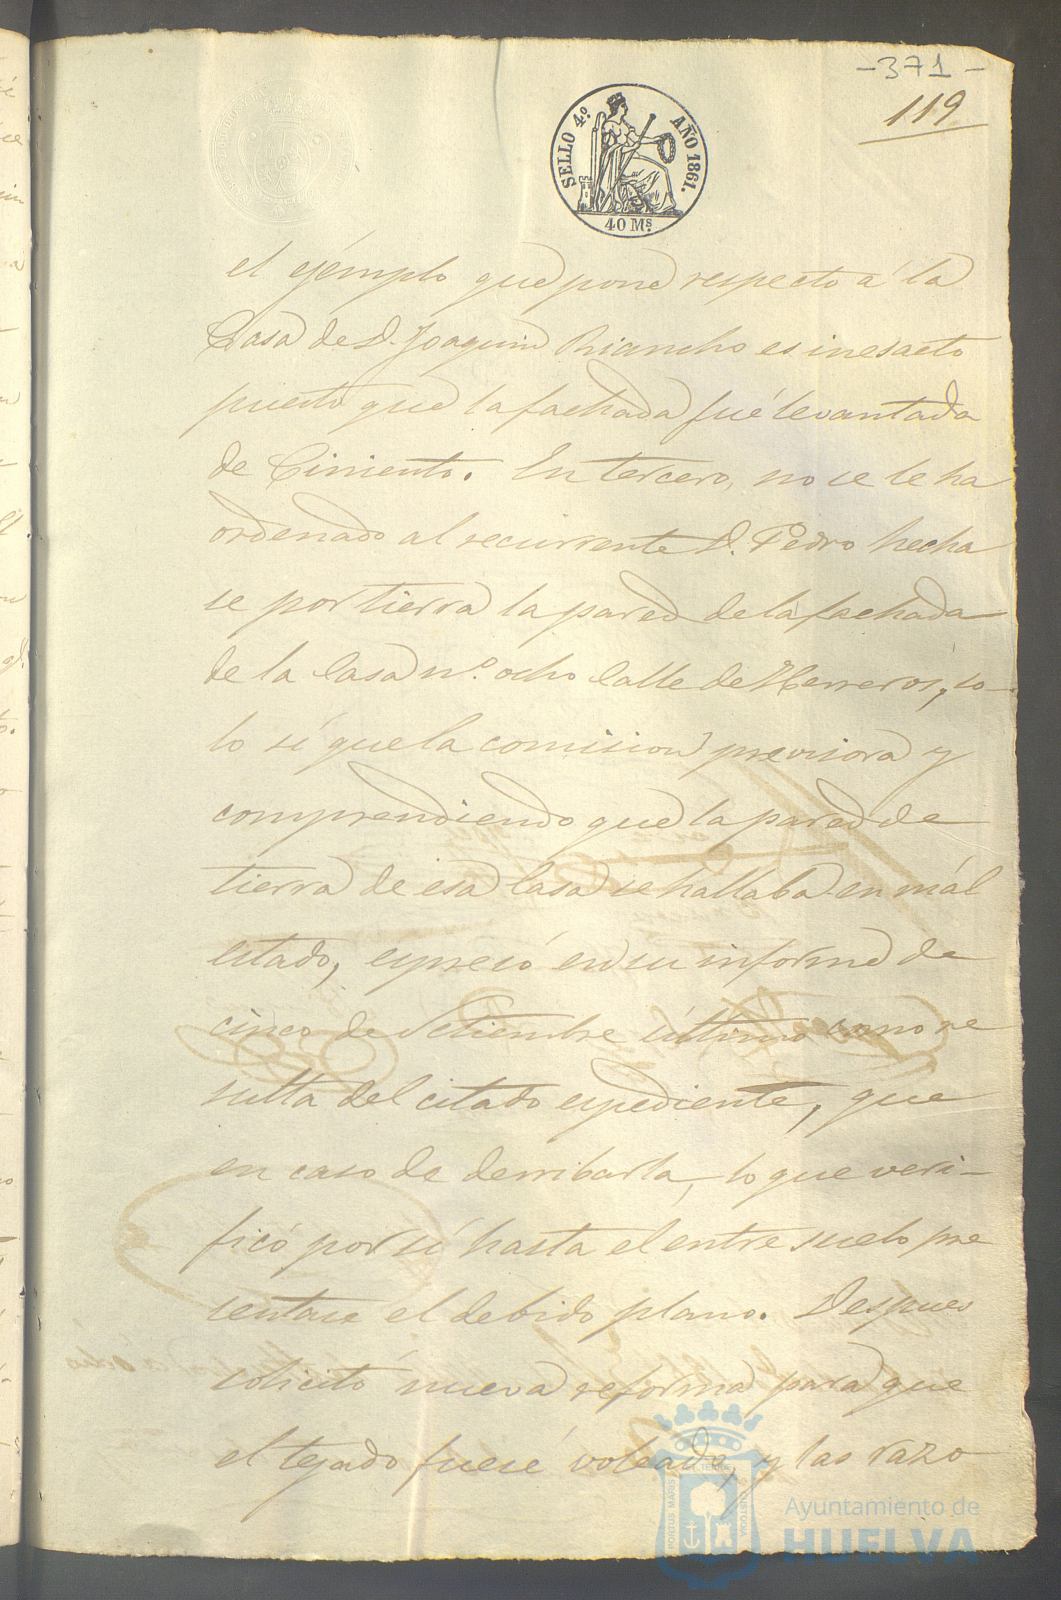 -371-
119
SELLO 4º AÑO 1861.
40 Ms.
el ejémplo que pone respecto á la
Casa de D. Joaquin Riancho es inesacto
puesto que la fachada fué levantada
de Cimiento. En tercero, no se le ha
ordenado al recurrente D. Pedro hecha
se por tierra la pared de la fachada
de la Casa nº. ocho Calle de Herreros, so-
lo sí que la comision previsora y
comprendiendo que la pared de
tierra de esa Casa se hallaba en mál
estado, espresó en su informe de
cinco de Setiembre último como re
sulta del citado espediente, que
en caso de derribarla, lo que veri-
ficó por sí hasta el entre suelo pre
sentase el debido plano. Despues
solicitó nueva reforma para que
el tejado fuese voleado, y las razo
PORTUS MARIS ET TERRE CUSTODIA
Ayuntamiento de
HUELVA